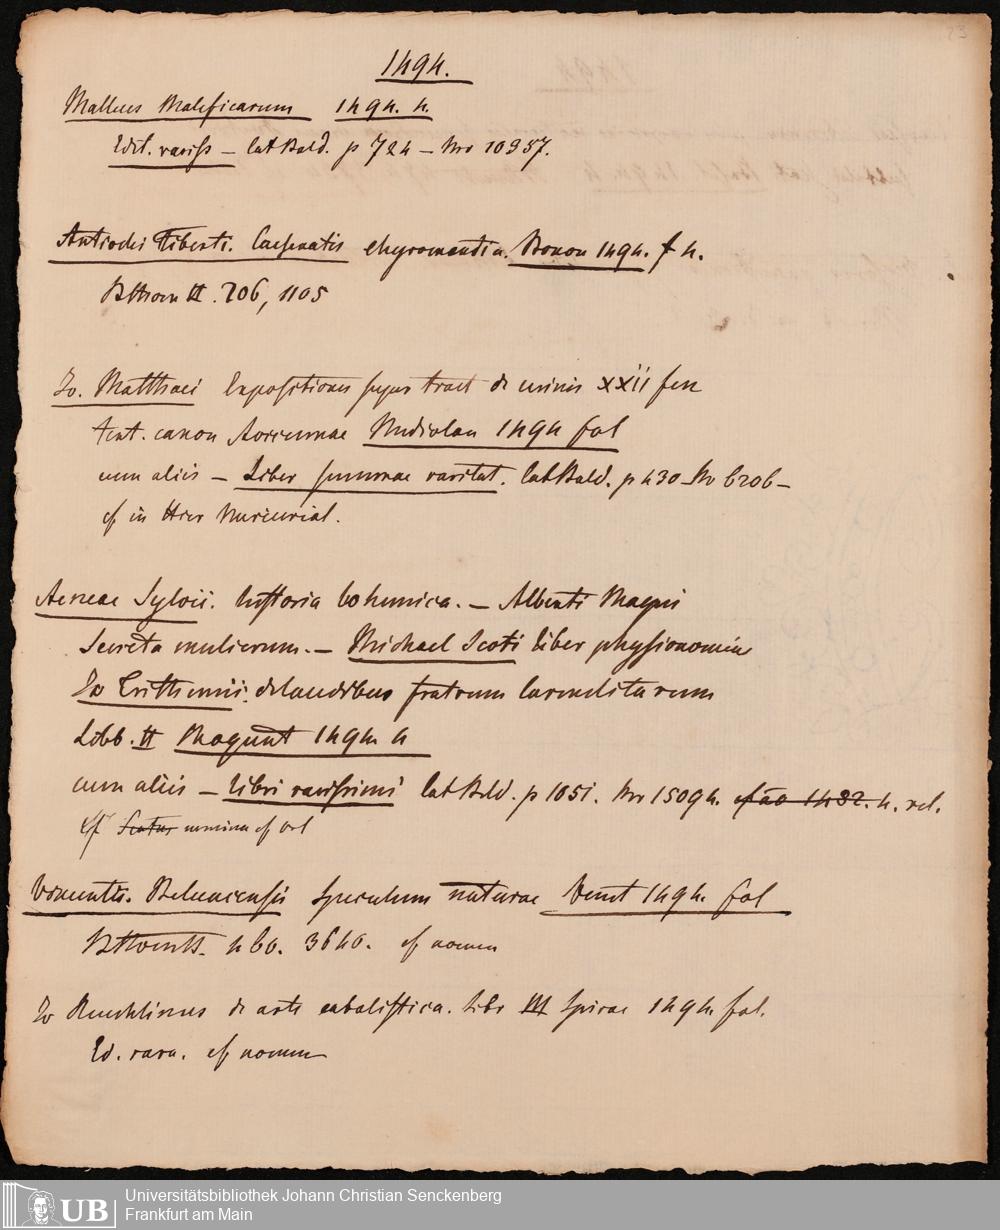 1494.
Malleus Maleficarum 1494. 4.
Edit. rariss – Cat Bald. p 724 – Nro 10957.
Antiochi Tiberti. Caesenatis chyromantia. Bonon 1494. f 4.
BThom III. 206, 1105
Jo. Matthaei Expositiones super tract de urinis XXII fen
tert. canon Avicennae Mediolan 1494 fol
cum aliis – Liber summae raritat. Cat Bald. p 430 – Nr 6206 –
cf in Hier Mercurial.
Aeneae Sylvii. historia bohemica. – Alberti Magni
Secreta mulierum. – Michael Scoti Liber physionomiae
Jo Trithemii: de laudibus fratrum Carmelitarum
Libb. II Magunt 1494 4
cum aliis – Libri rarissimi Cat Bld. p 1051. Nro 15094. cf ao 1482. 4. rel.
cf Scotus nomina cf
Vincentii. Beluacensis Speculum naturae Venet 1494. fol
4 60. 3646. cf nomen
Jo Reuchlinus de arte cabalistica. Libr III Spirae 1494. fol.
Ed. rara. cf nomen
23
UB
Universitätsbibliothek Johann Christian Senckenberg
Frankfurt am Main